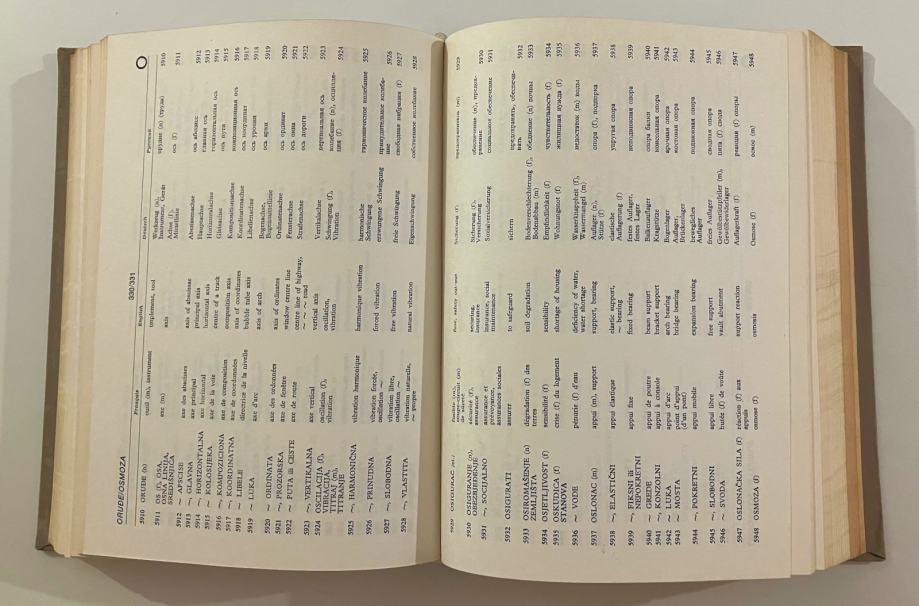 ORUĐE/OSMOZA 330/331 O
Français English Deutsch Русский
5910 ORUĐE (n) outil (m), instrument implement, tool Werkzeug (n), орудие (n) (труда) 5910
Instrument, Gerät
5911 OS (f), OSA, axe (m) axis Achse (f), ось (f) 5911
OSNA LINIJA,
SREDIŠNJICA
5912 ~ APSCISE axe des abscisses axis of abscissae Abszissenachse ось абсцисс 5912
5913 ~, GLAVNA axe principal principal axis Hauptachse главная ось 5913
5914 ~, HORIZONTALNA axe horizontal horizontal axis Horizontalachse горизонтальная ось 5914
5915 ~ KOLOSIJEKA axe de la voie centre of a track Gleisachse ось пути 5915
5916 ~, KOMPOZICIONA axe de composition composition axis Kompositionsachse композиционная ось 5916
5917 ~ KOORDINATNA axe de coordonnées axis of coordinates Koordinatenachse ось координат 5917
5918 ~ LIBELE directrice de la nivelle bubble tube axis Libellenachse ось уровня 5918
5919 ~ LUKA axe d'arc axis of arch Bogenachse, ось арки 5919
5920 ~ ORDINATA axe des ordonnées axis of ordinates Ordinatenachse ось ординат 5920
5921 ~ PROZORSKA axe de fenêtre window centre line Fensterachse ось окна 5921
5922 ~ PUTA ili CESTE axe de route centre line of highway, Straßenachse ось дороги 5922
~ ~ ~ road
5923 ~, VERTIKALNA axe vertical vertical axis Vertikalachse вертикальная ось 5923
5924 OSCILACIJA (f), oscillation (f), oscillation, Schwingung (f), колебание (n), осцилля- 5924
VIBRACIJA, vibration (f) vibration Vibration ция (f)
TITRAJ (m),
TITRANJE
5925 ~, HARMONIČNA vibration harmonique harmonique vibration harmonische гармоническое колебание 5925
Schwingung
5926 ~, PRINUDNA vibration forcée, forced vibration erzwungene Schwingung принудительное колеба- 5926
oscillation ~ ние
5927 ~, SLOBODNA vibration libre, free vibration freie Schwingung свободная вибрация (f) 5927
oscillation ~
5928 ~, VLASTITA vibration naturelle, natural vibration Eigenschwingung собственное колебание 5928
~ propre
5929 5929
5930 OSIGURANJE (n), sécurité (f), securing, Sicherung (f), обеспечение (n), 5930
OBEZBJEĐENJE assurance insurance Versicherung
5931 ~, SOCIJALNO assurance et insurance, social Sozialversicherung социальное обеспечение 5931
prévoyance, maintenance
assurances sociales
5932 OSIGURATI assurer to safeguard sichern предохранить, обеспечи- 5932
вать
5933 OSIROMAŠENJE (n) dégradation (f) des soil degradation Bodenverschlechterung (f), обеднение (n) почвы 5933
ZEMLJIŠTA terres Bodenabbau (m)
5934 OSJETLJIVOST (f) sensibilité (f) sensibility Empfindlichkeit (f) чувствительность (f) 5934
5935 OSKUDICA (f) crise (f) du logement shortage of housing Wohnungsnot (f) жилищная нужда (f) 5935
STANOVA
5936 ~ VODE pénurie (f) d'eau deficiency of water, Wasserknappheit (f), недостаток (m) воды 5936
water shortage Wassermangel (m)
5937 OSLONAC (m) appui (m), support support, bearing Auflager (n), опора (f), подпорка 5937
Stütze (f)
5938 ~, ELASTIČNI appui élastique elastic support, elastische упругая опора 5938
~ bearing Auflagerung (f)
5939 ~, FIKSNI ili appui fixe fixed bearing festes Auflager, неподвижная опора 5939
NEPOKRETNI festes Lager
5940 ~ GREDE appui de poutre beam support Balkenlager опора балки 5940
5941 ~ KONZOLNI appui à console bracket support Kragstütze консольная опора 5941
5942 ~ LUKA appui d'arc arch bearing Bogenlager арочная опора 5942
5943 ~ MOSTA point d'appui bridge bearing Auflager, мостовая опора 5943
(d'un pont) Brückenlager
5944 ~, POKRETNI appui mobile expansion bearing bewegliches подвижная опора 5944
Auflager
5945 ~, SLOBODNI appui libre free support freies Auflager свободная опора 5945
5946 ~ SVODA butée (f) de voûte vault abutment Gewölbekämpfer (m), пята (f) свода 5946
5947 OSLONAČKA SILA (f) réaction (f) aux support reaction Auflagerkraft (f) реакция (f) опоры 5947
appuis
5948 OSMOZA (f) osmose (f) osmosis Osmose (f) осмос (m) 5948